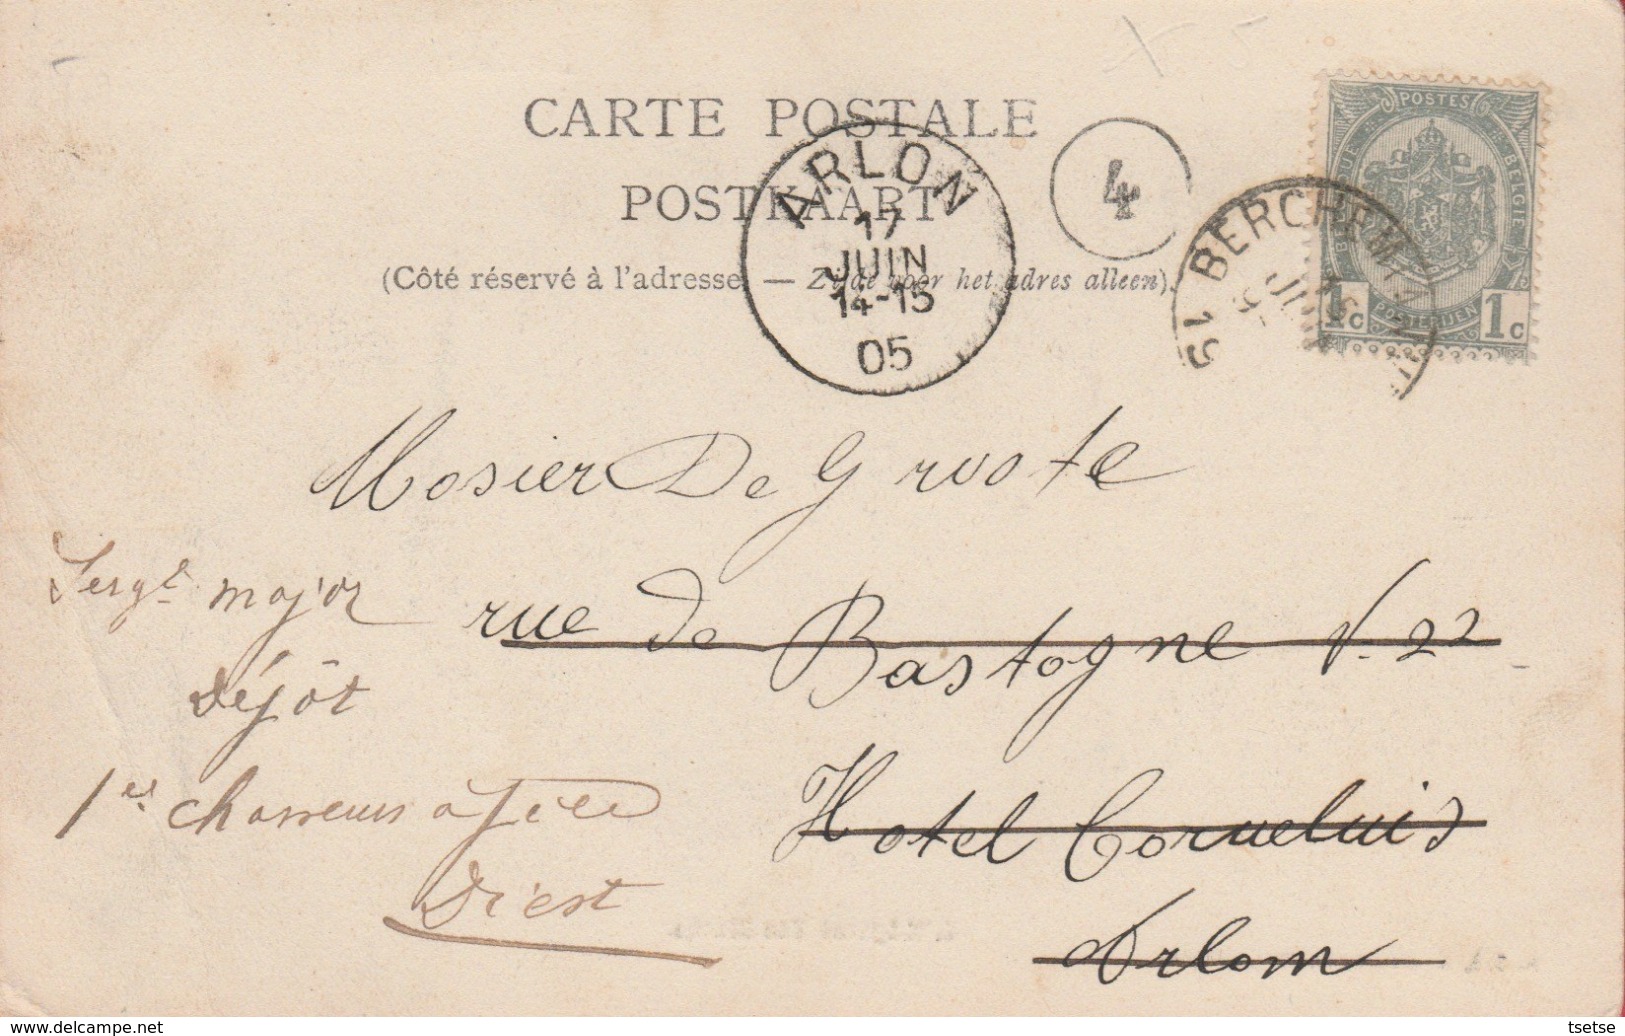 CARTE POSTALE
POSTKAART
(Côté réservé à l'adresse. — Zijde voor het adres alleen).
ARLON
17
JUIN
14-15
05
4
BERCHEM
19
POSTES
BELGIQUE
BELGIE
1c POSTERIJEN 1c
Mosier De Groote
rue de Bastogne N. 22
Hotel Corneluis
Arlon
Sergt major
Dépôt
1er chasseurs à pied
Diest
www.delcampe.net
tsetse